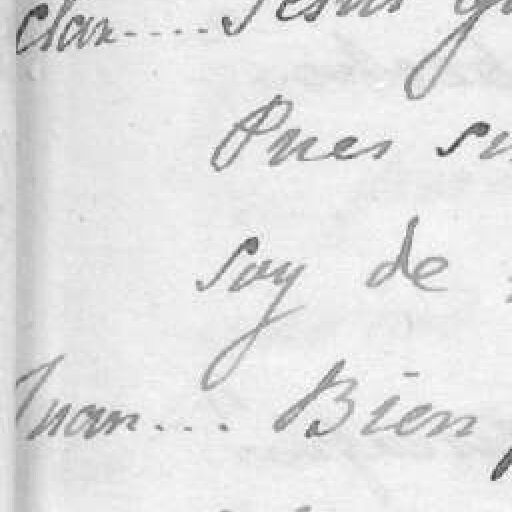 clax.... Jesus
Pues
Soy de
Juan... Bien